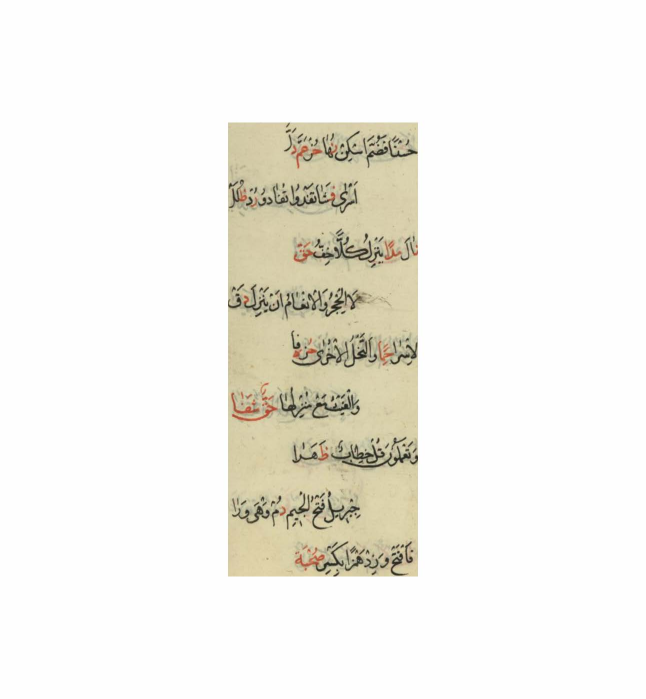 حُسْنًا فَضُمَّ اسْكِنْ نُهًا حُزْ عَمَّ دَلْ
أَسْرَى فَشَا تَفْدُوا تُفَادُو رُدْ ظُلَلْ
نَالَ مَدًا يُنْزِلُ كُلًّا خِفَّ حَقْ
لَا الْحِجْرُ وَالْأَنْعَامُ أَنْ يُنْزِلَ دَقْ
لِاسْرَا حِمًا وَالنَّحْلُ الْأُخْرَى حُزْ دَفَا
وَالْغَيْثُ مَعْ مُنْزِلُهَا حَقٌّ شَفَا
وَيَعْمَلُونَ قُلْ خِطَابٌ ظَهَرَا
جِبْرِيلَ فَتْحُ الْجِيمِ دُمْ وَهِيَ وَرَا
فَافْتَحْ وَزِدْ هَمْزًا بِكَسْرٍ صُحْبَهْ